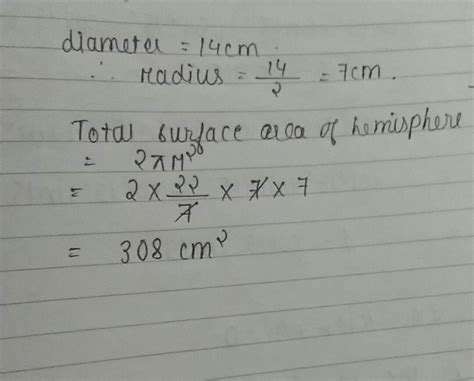 diameter = 14cm.
∴ radius = 14/2 = 7cm.
Total surface area of hemisphere
= 2πr²
= 2 × 22/7 × 7 × 7
= 308 cm²